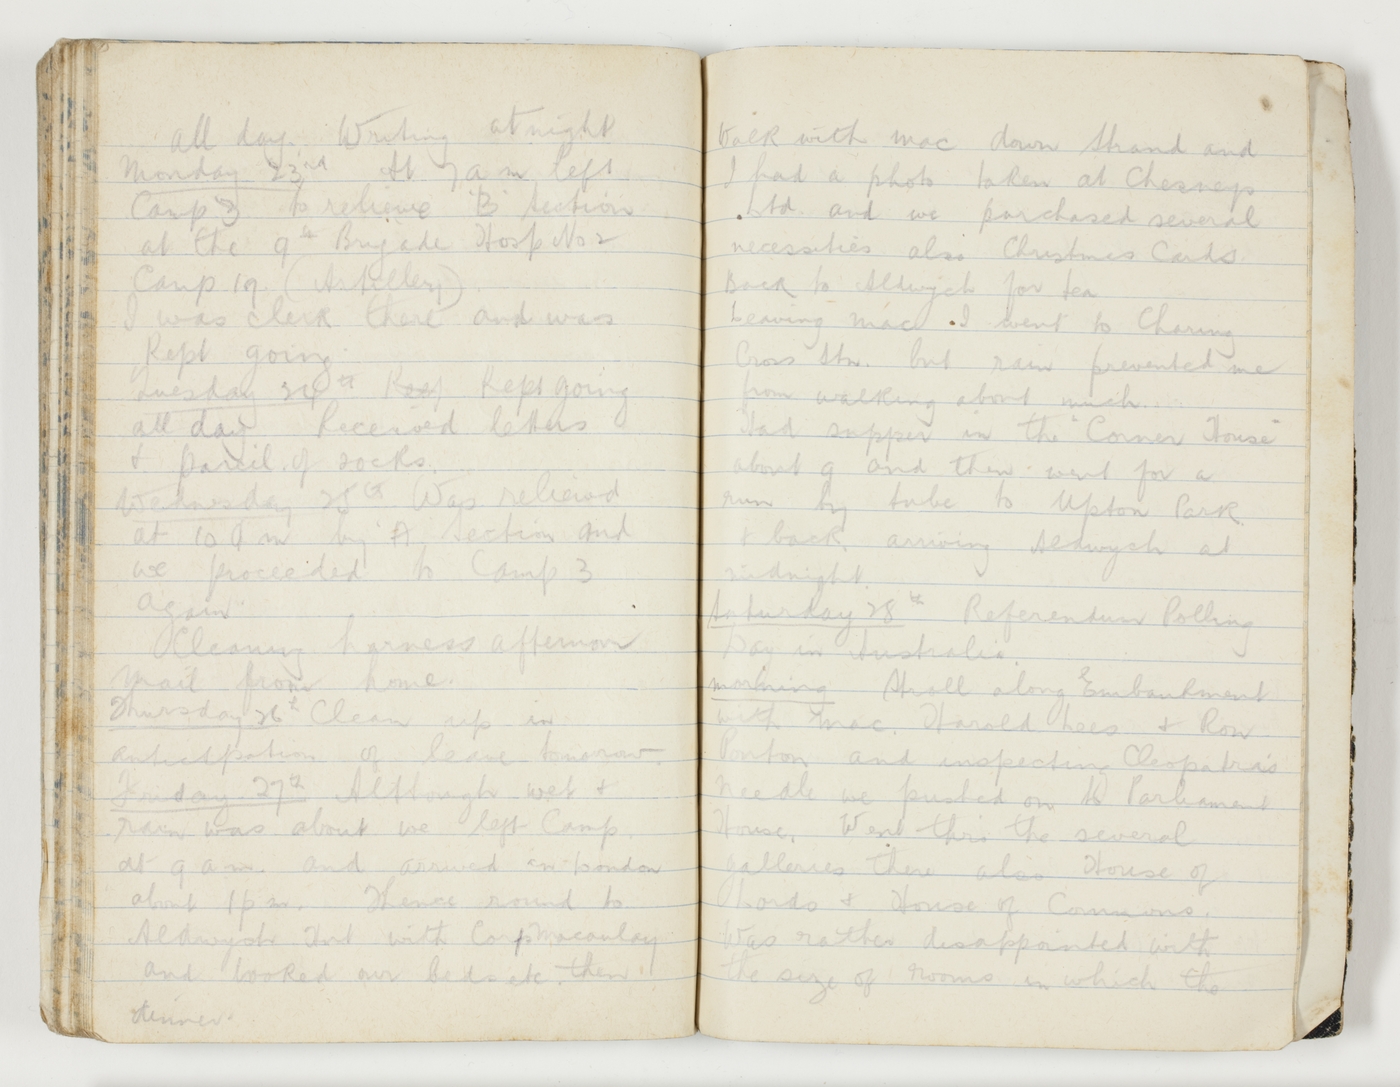 all day. Writing at night
Monday 23rd At 7 a m left
Camp 3 to relieve 'B' Section
at the 9th Brigade Hosp No 2
Camp 19 (Artillery).
I was clerk there and was
Kept going.
Tuesday 24th Kept going
all day Received letters
& parcil of socks.
Wednesday 25th Was relieved
at 10 a m by A Section and
we proceeded to Camp 3
again.
Cleaning harness afternoon
Mail from home.
Thursday 26th Clean up in
anticipation of leave tomorow.
Friday 27th Although wet &
rain was about we left Camp.
at 9 a m. and arrived in London
about 1 p m. Thence round to
Aldwych Hut with Corp Macaulay
and booked our beds etc. then
dinner.
Walk with Mac down Strand and
I had a photo taken at Chesneys
Ltd. and we purchased several
necessities also Christmas Cards.
Back to Aldwych for tea
Leaving Mac I went to Charing
Cross Stn. but rain prevented me
from walking about much.
Had supper in the "Corner House"
about 9 and then went for a
run by tube to Upton Park
& back arriving Aldwych at
midnight.
Saturday 28th Referendum Polling
Day in Australia.
morning Stroll along Embankment
with Mac. Harold Lees & Ron
Ponton and inspecting Cleopatra's
Needle we pushed on to Parliament
House. Went thro the several
galleries there also House of
Lords & House of Commons.
Was rather disappointed with
the size of rooms in which the